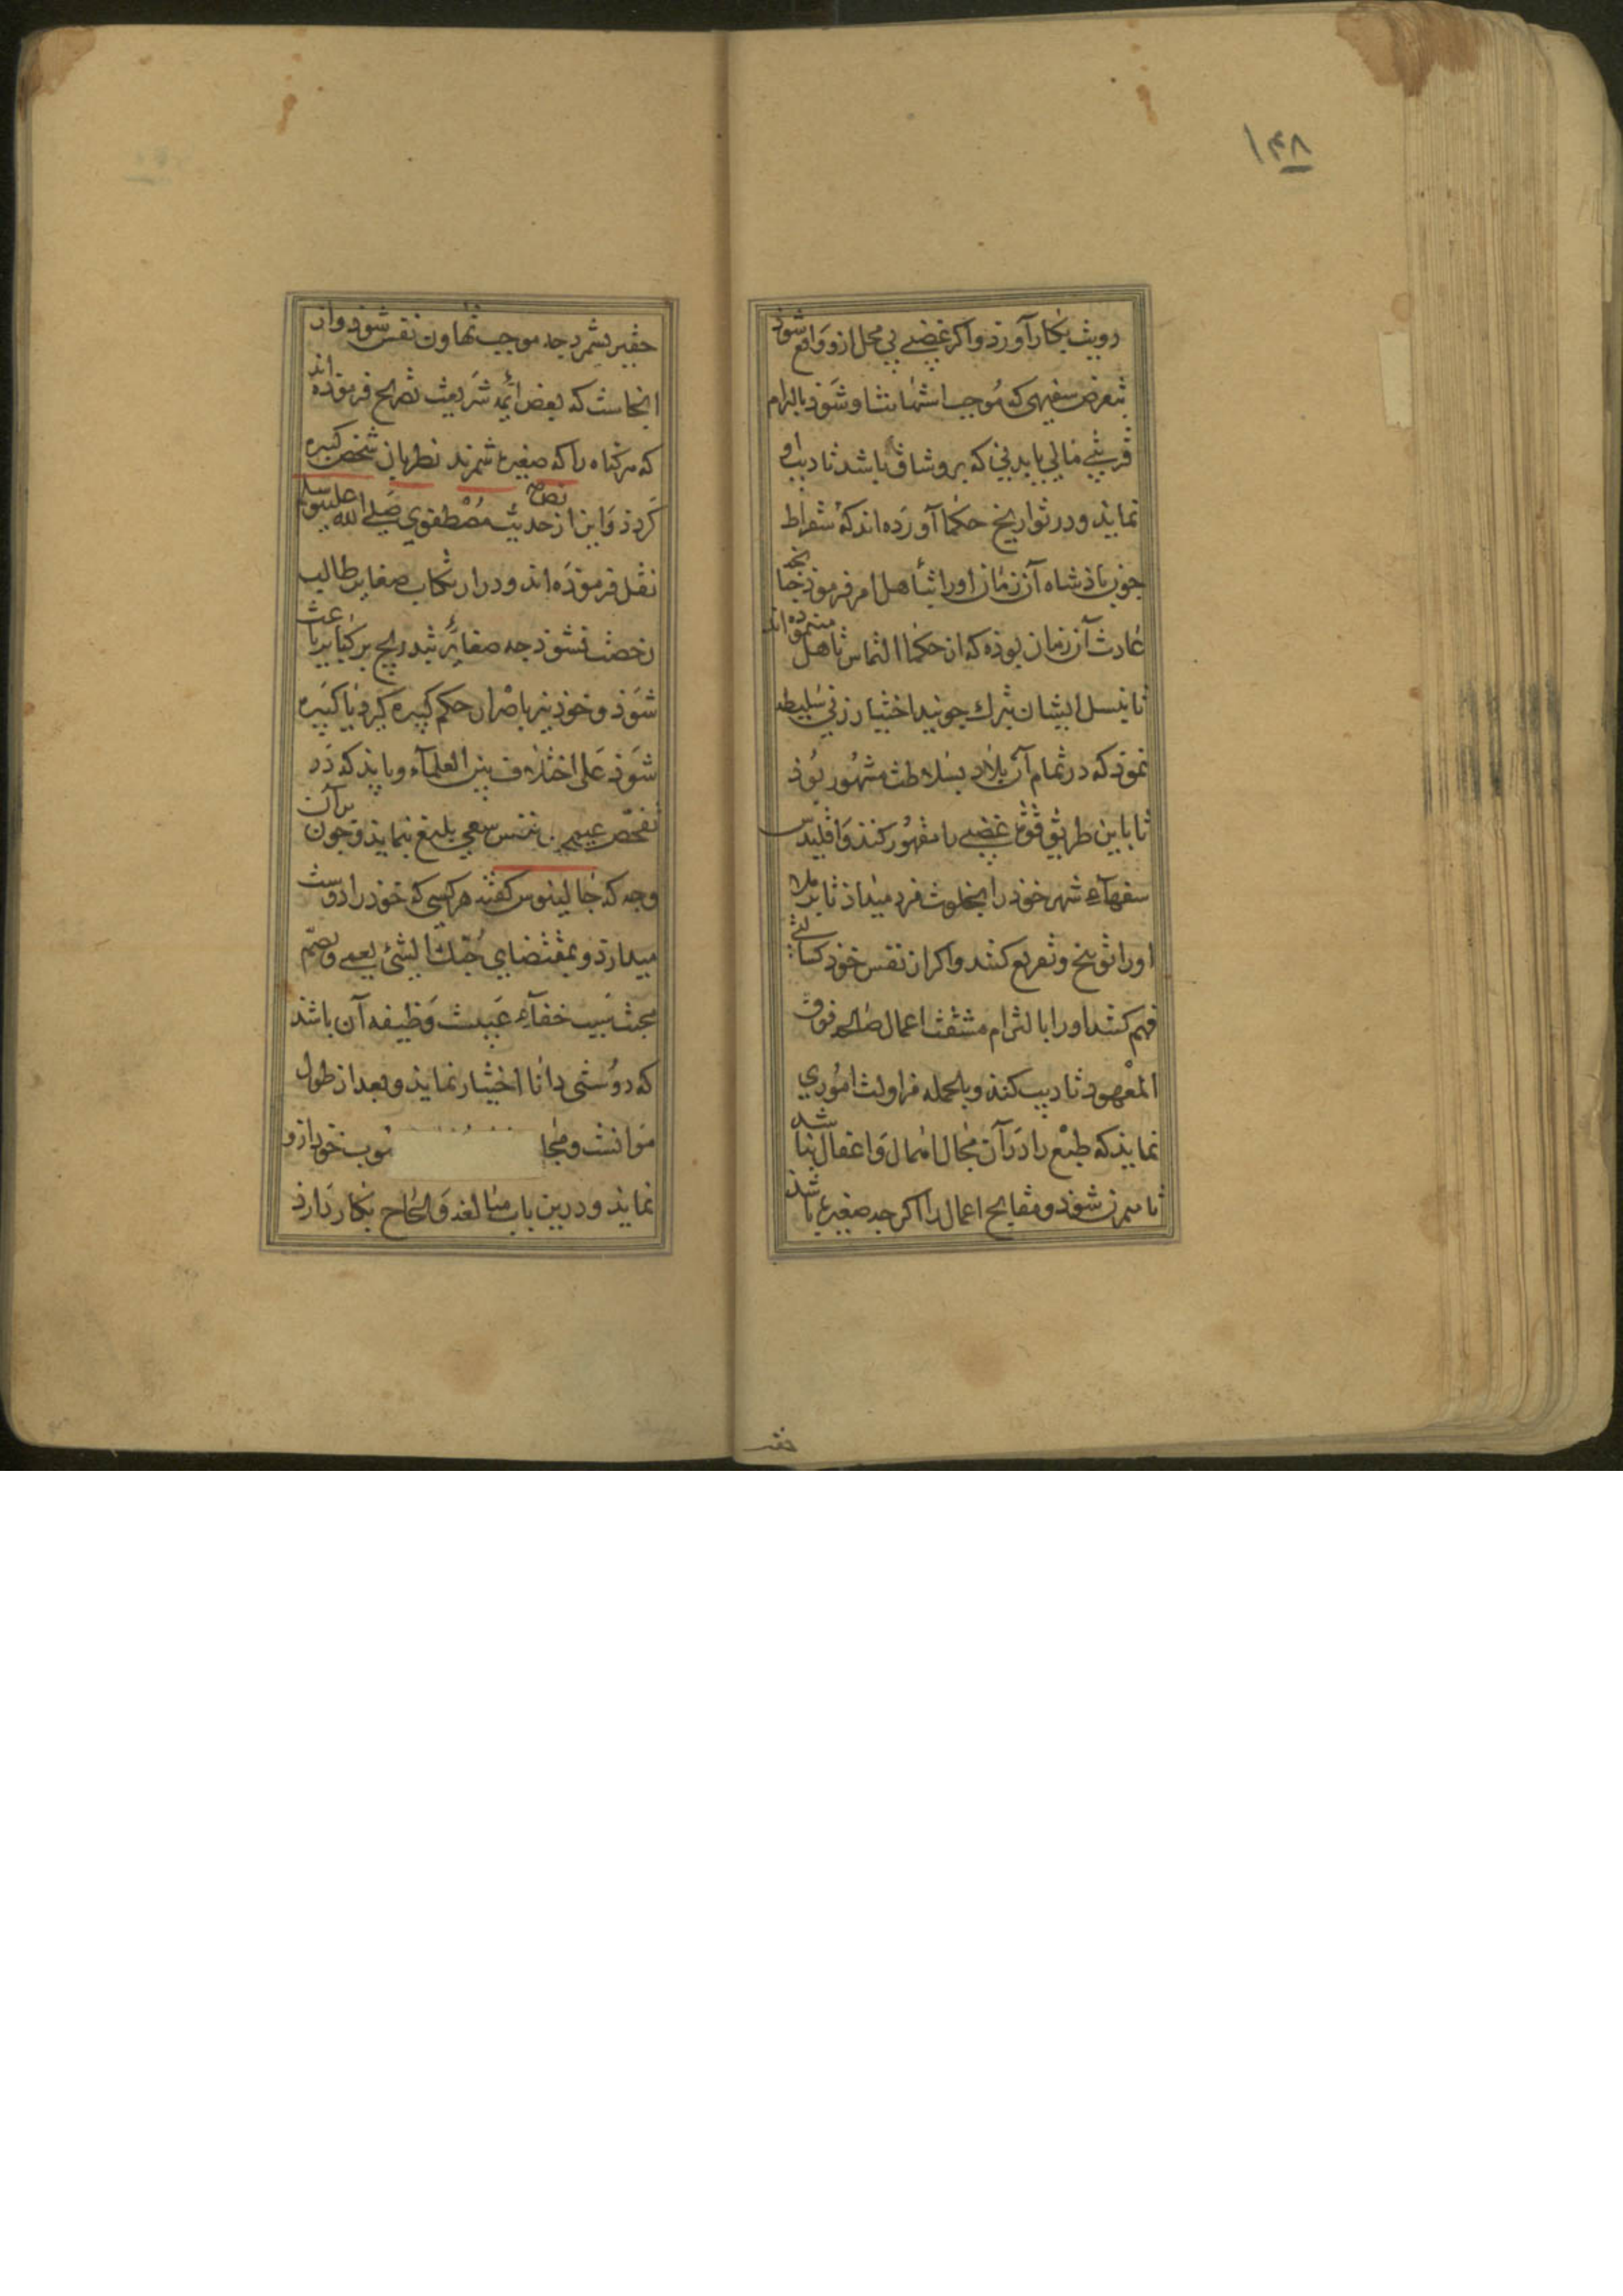 ۱۴۸
رویت بکار آورد و اکر غضبی بی محل ازو واقع شوذ
بتعرض سفیهی که موجب استهانت او شوذ یا بالزام
قربتی مالی یا بدنی که برو شاق باشد تادیب او
نماید و در تواریخ حکما آورده اند که سقراط
جون باذشاه آن زمان او را بتأهل امر فرموذ جنانجه
عادت آن زمان بوذه که از حکما التماس تاهل مینموده اند
تا نسل ایشان بترك جوید اختیار زنی سلیطه
نموذ که در تمام آن بلاد بسلاطت مشهور بوذ
تا باین طریق قوت غضبی را مقهور کنذ و اقلیدس
سفهاء شهر خوذ را بخلوت فرد میداذ تا بر ملا
او را توبیخ و تقریع کنند و اکر از نفس خوذ کسالتی
فهم کند او را بالتزام مشقت اعمال صالحه فوق
المعهود تادیب کنذ و بالجمله مزاولت اموری
نمایذ که طبع را در آن مجال اهمال و اغفال نباشد
تا متمرن شوذ و مقابح اعمال را اکرجه صغیره باشد
حقیر
حقیر نشمرد جه موجب تهاون نفس شوذ و از
اینجاست که بعض ائمه شریعت تصریح فرموده اند
که هر کناه را که صغیره شمرند نظر بان شخص کبیره
کردذ و این از نص حدیث مصطفوی صلی الله علیه وسلم
نقل فرموذه اند و در ارتکاب صغایر طالب
رخصت نشوذ جه صغایر بتدریج بر کبایر باعث
شوذ و خوذ نیز باصرار حکم کبیره کیرد یا کبیره
شوذ علی اختلاف بین العلماء و بایذ که در
تفحص عیوب نفس سعی بلیغ نمایذ و جون بر آن
وجه که جالینوس کفته هر کسی که خوذ را دوست
میدارد و بمقتضای حبك الشئ یعمی ویصم
محبت سبب خفاء عیبست وظیفه آن باشذ
که دوستی دانا اختیار نمایذ و بعد از طول
موانست و عیوب خود ازو
نمایذ و درین باب مبالغه و الحاح بکار دارذ